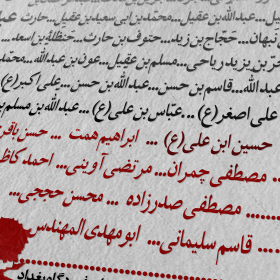 ...عبدالله بن عقیل...محمدبن ابی سعیدبن عقیل...حارث
نبهان...حجّاج بن زید...حتوف بن حارث...حنظلة بن اسعد...
حرّبن یزید ریاحی...مسلم بن عقیل...عون بن عبدالله...محمّد
عبدالله...قاسم بن حسن...عبدالله بن حسن...علی اکبر(ع)
علی اصغر(ع)...عبّاس بن علی(ع)...عبدالله بن مسلم بن
حسین ابن علی(ع) ... ابراهیم همت ... حسن باقری
... مصطفی چمران... مرتضی آوینی... احمد کاظ
... مصطفی صدرزاده ... محسن حججی...
... قاسم سلیمانی... ابومهدی المهندس
بغداد